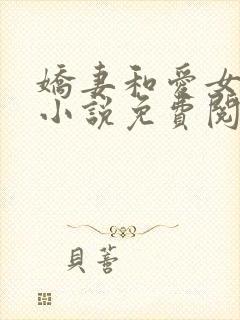 嬌妻和愛女
小說免費閱
貝蕾